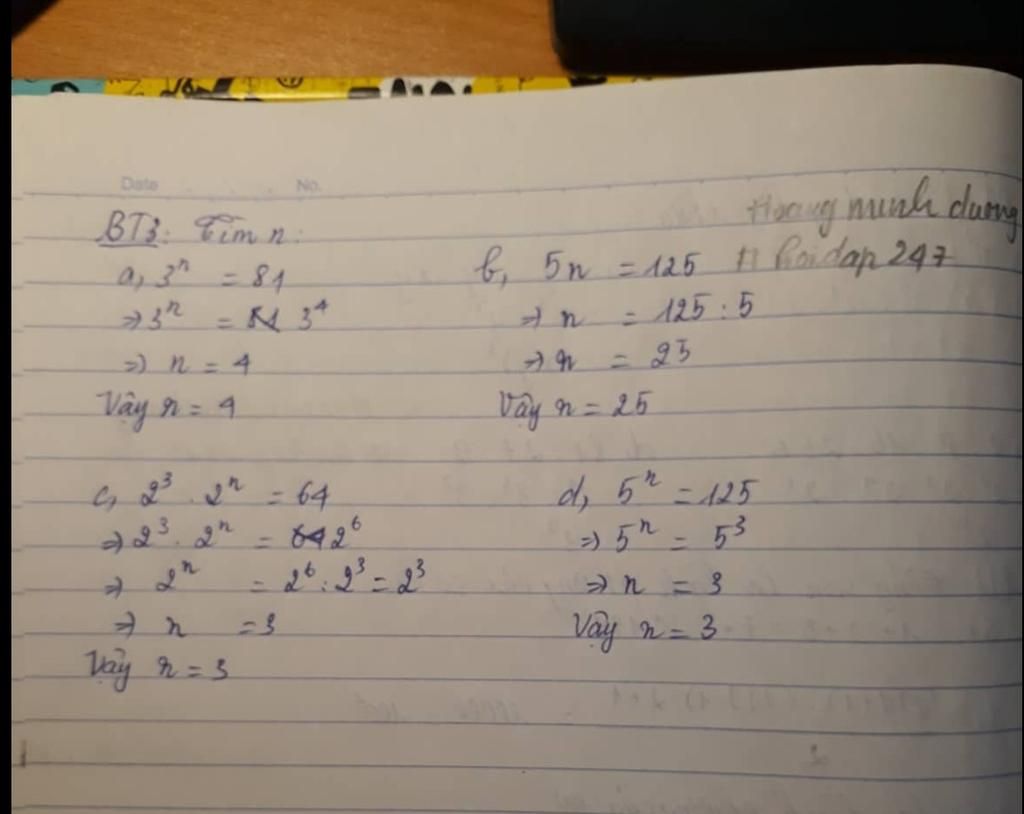 Date No.
Hoang minh duong
BT3: Tìm n:
hoidap 247
a, 3ⁿ = 81
⇒ 3ⁿ = 3⁴
⇒ n = 4
Vậy n = 4
b, 5n = 125
⇒ n = 125 : 5
⇒ n = 25
Vậy n = 25
c, 2³ . 2ⁿ = 64
⇒ 2³ . 2ⁿ = 2⁶
⇒ 2ⁿ = 2⁶ : 2³ = 2³
⇒ n = 3
Vậy n = 3
d, 5ⁿ = 125
⇒ 5ⁿ = 5³
⇒ n = 3
Vậy n = 3